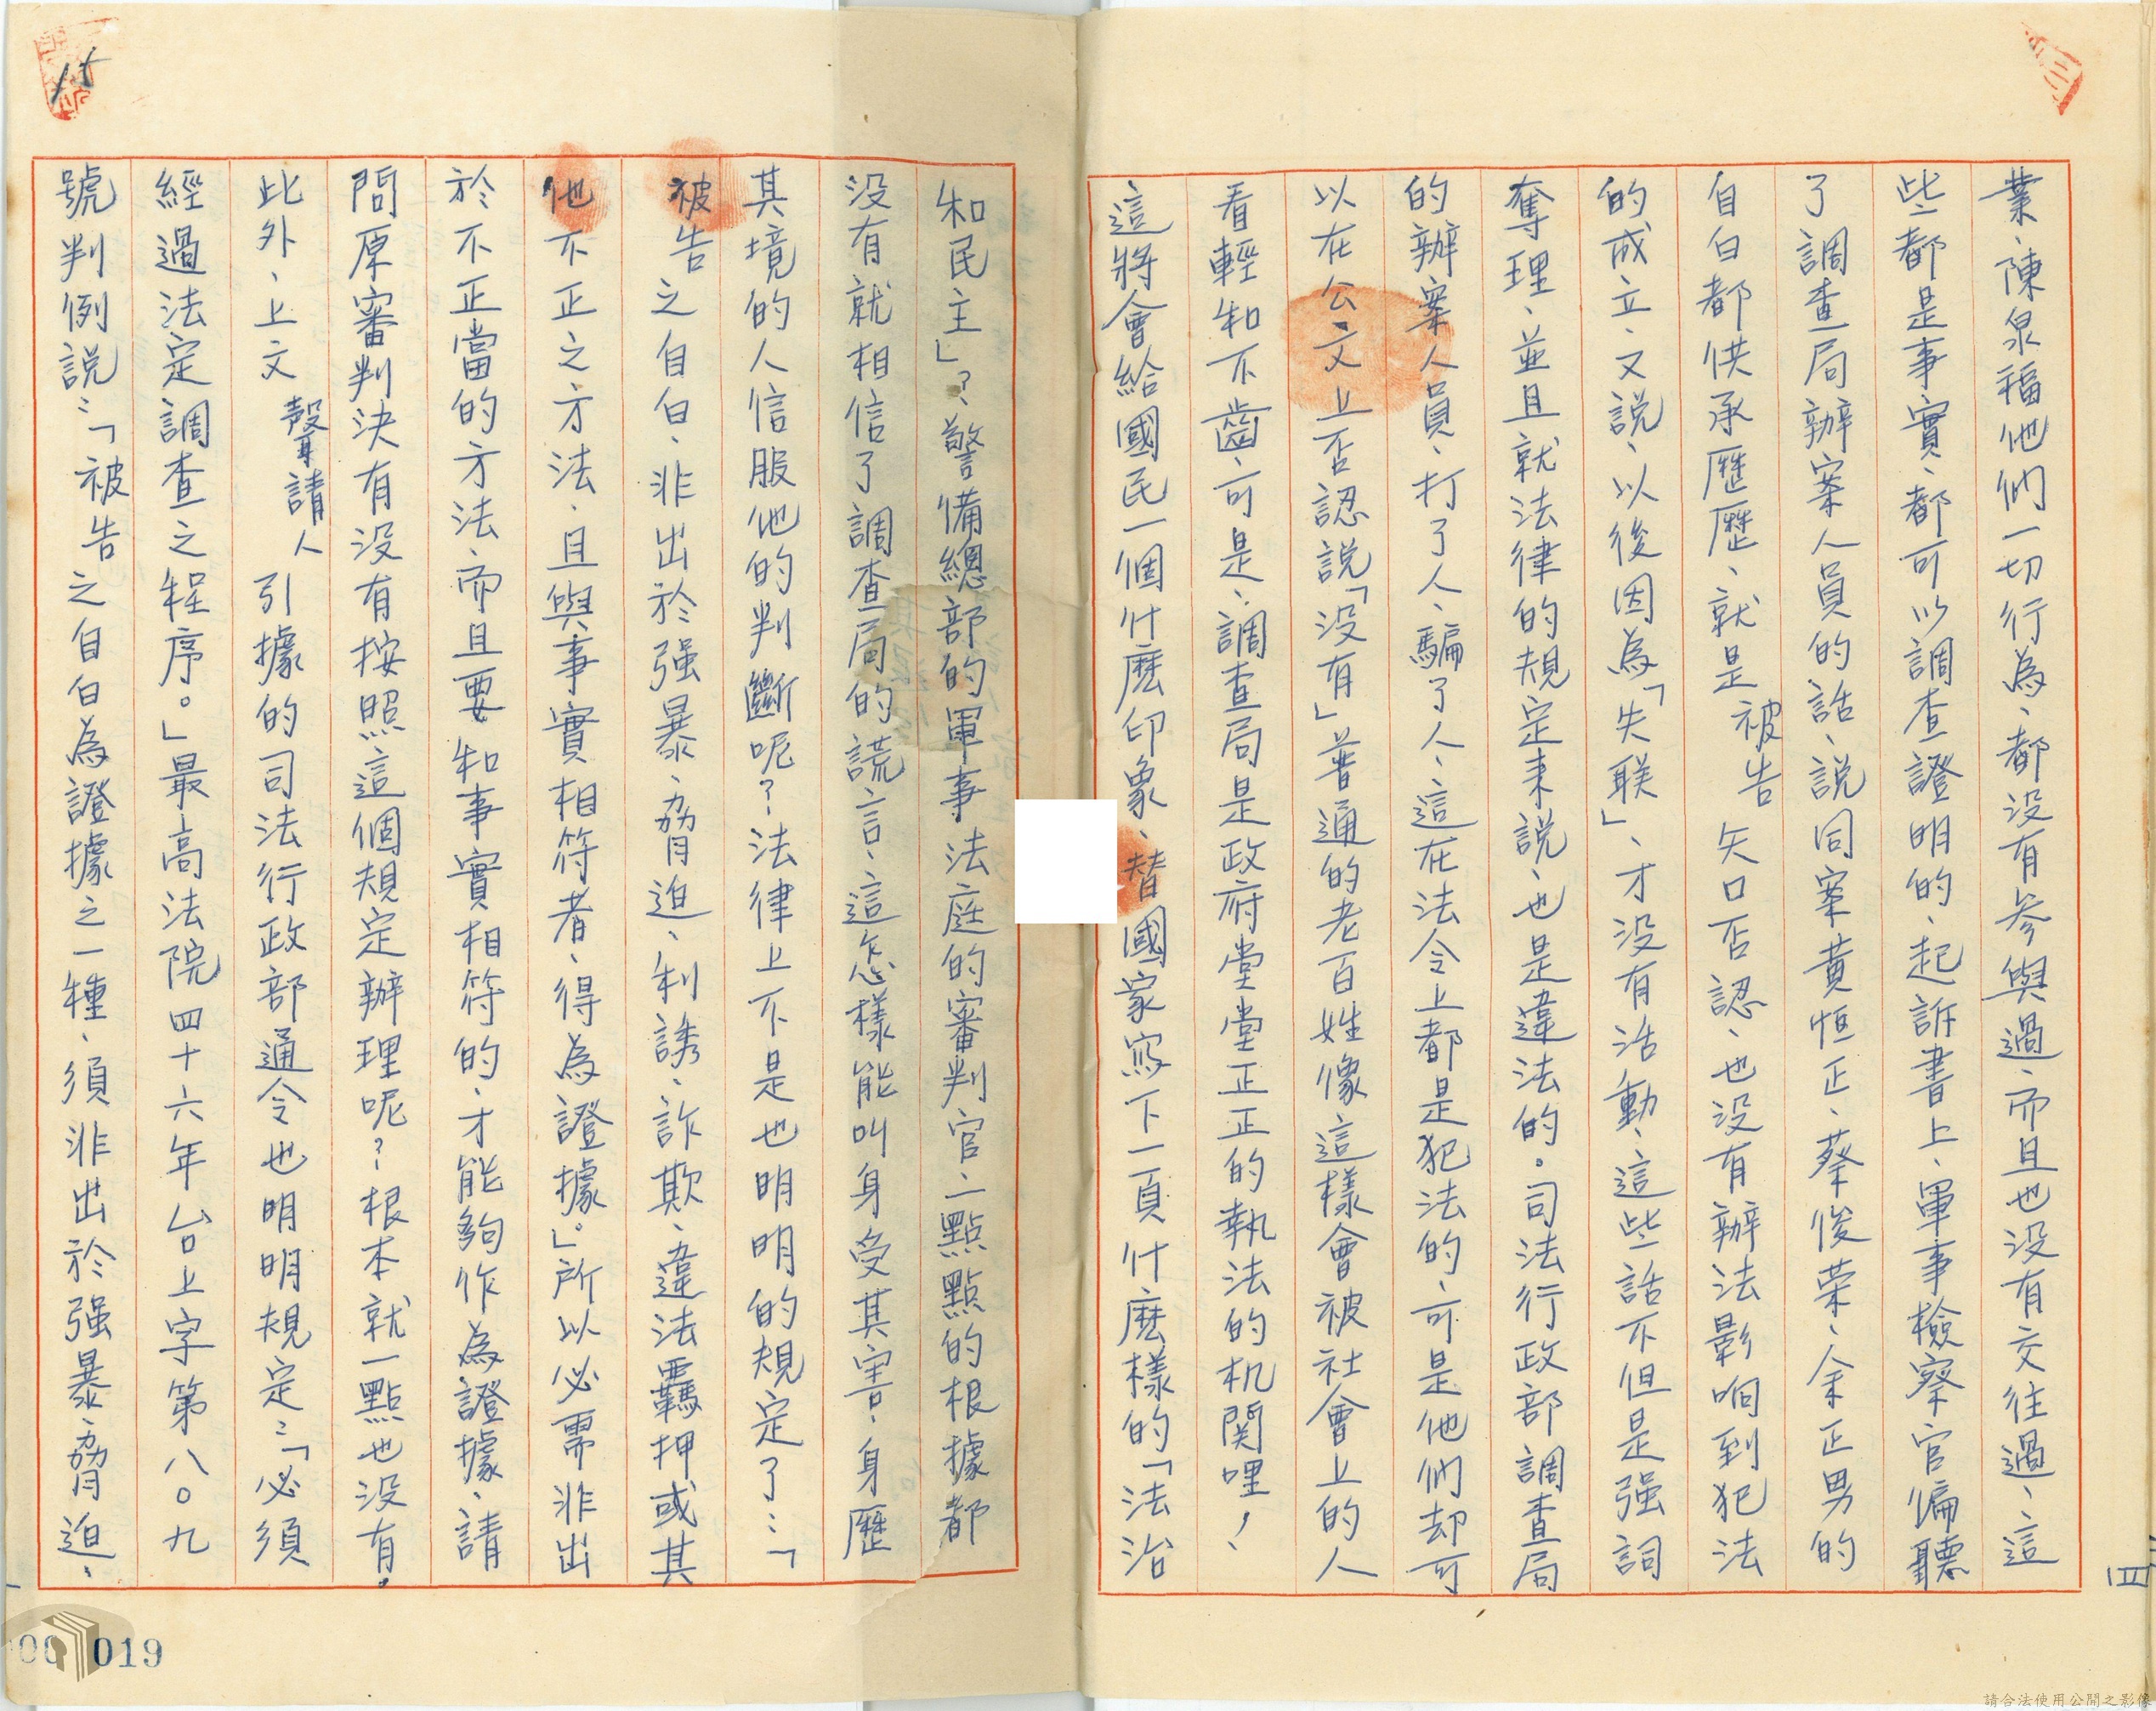 業、陳泉福他們一切行為、都没有參與過、而且也没有交往過、這
些都是事實、都可以調查證明的、起訴書上、軍事檢察官偏聽
了調查局辦案人員的話、説同案黄恒正、蔡俊荣、余正男的
自白都供承歷歷、就是被告矢口否認、也没有辦法影响到犯法
的成立、又説、以後因為「失联」、才没有活動、這些話不但是强詞
奪理、並且就法律的規定来説、也是違法的。司法行政部調查局
的辦案人員、打了人、騙了人、這在法令上都是犯法的、可是他們却可
以在公文上否認説「没有」普通的老百姓像這樣會被社會上的人
看輕和不齒、可是、調查局是政府堂堂正正的執法的机関哩！
這將會給國民一個什麽印象、替國家寫下一頁什麽樣的「法治
和民主」？、警備總部的軍事法庭的審判官、一點點的根據都
没有就相信了調查局的謊言、這怎樣能叫身受其害、身歷
其境的人信服他的判斷呢？法律上不是也明明的規定了：「
被告之自白、非出於强暴、脅迫、利誘、詐欺、違法羈押或其
他不正之方法、且與事實相符者、得為證據。」所以必需非出
於不正當的方法、而且要和事實相符的、才能夠作為證據、請
問原審判決有没有按照這個規定辦理呢？根本就一點也没有。
此外、上文聲請人引據的司法行政部通令也明明規定：「必須
經過法定調查之程序。」最高法院四十六年台上字第八〇九
號判例説：「被告之自白為證據之一種、須非出於强暴、脅迫、
四
15
019
請合法使用公開之影像